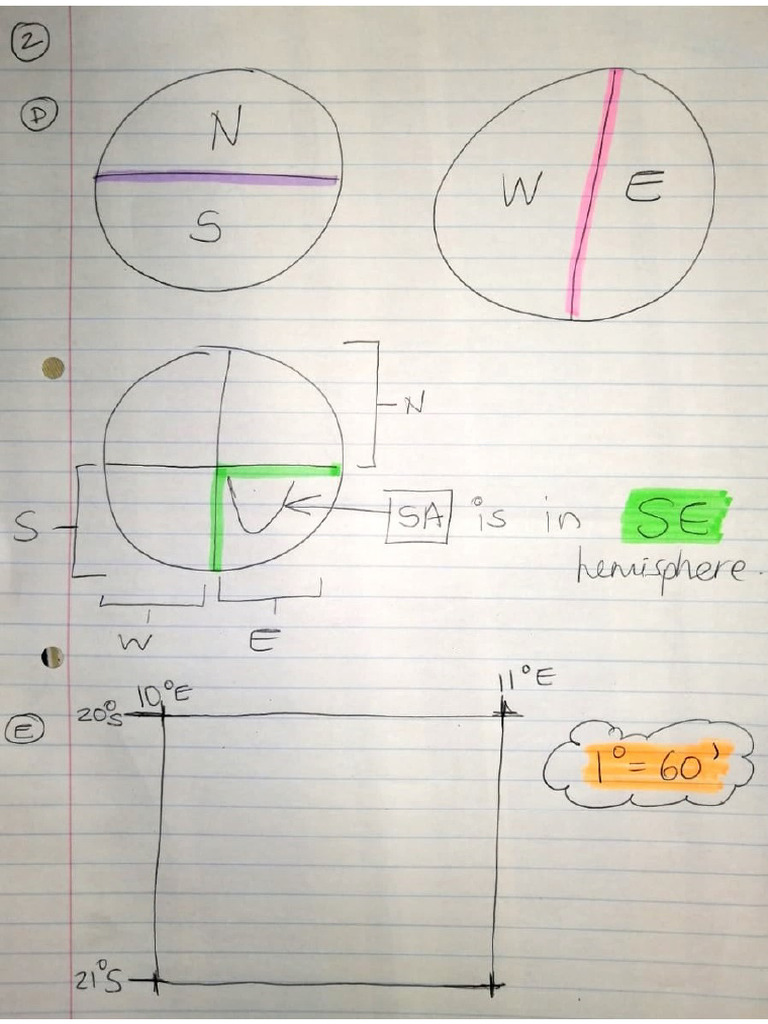 2
D
N
S
W E
N
S
SA is in SE
hemisphere.
W E
E
10°E
11°E
20°S
1° = 60'
21°S